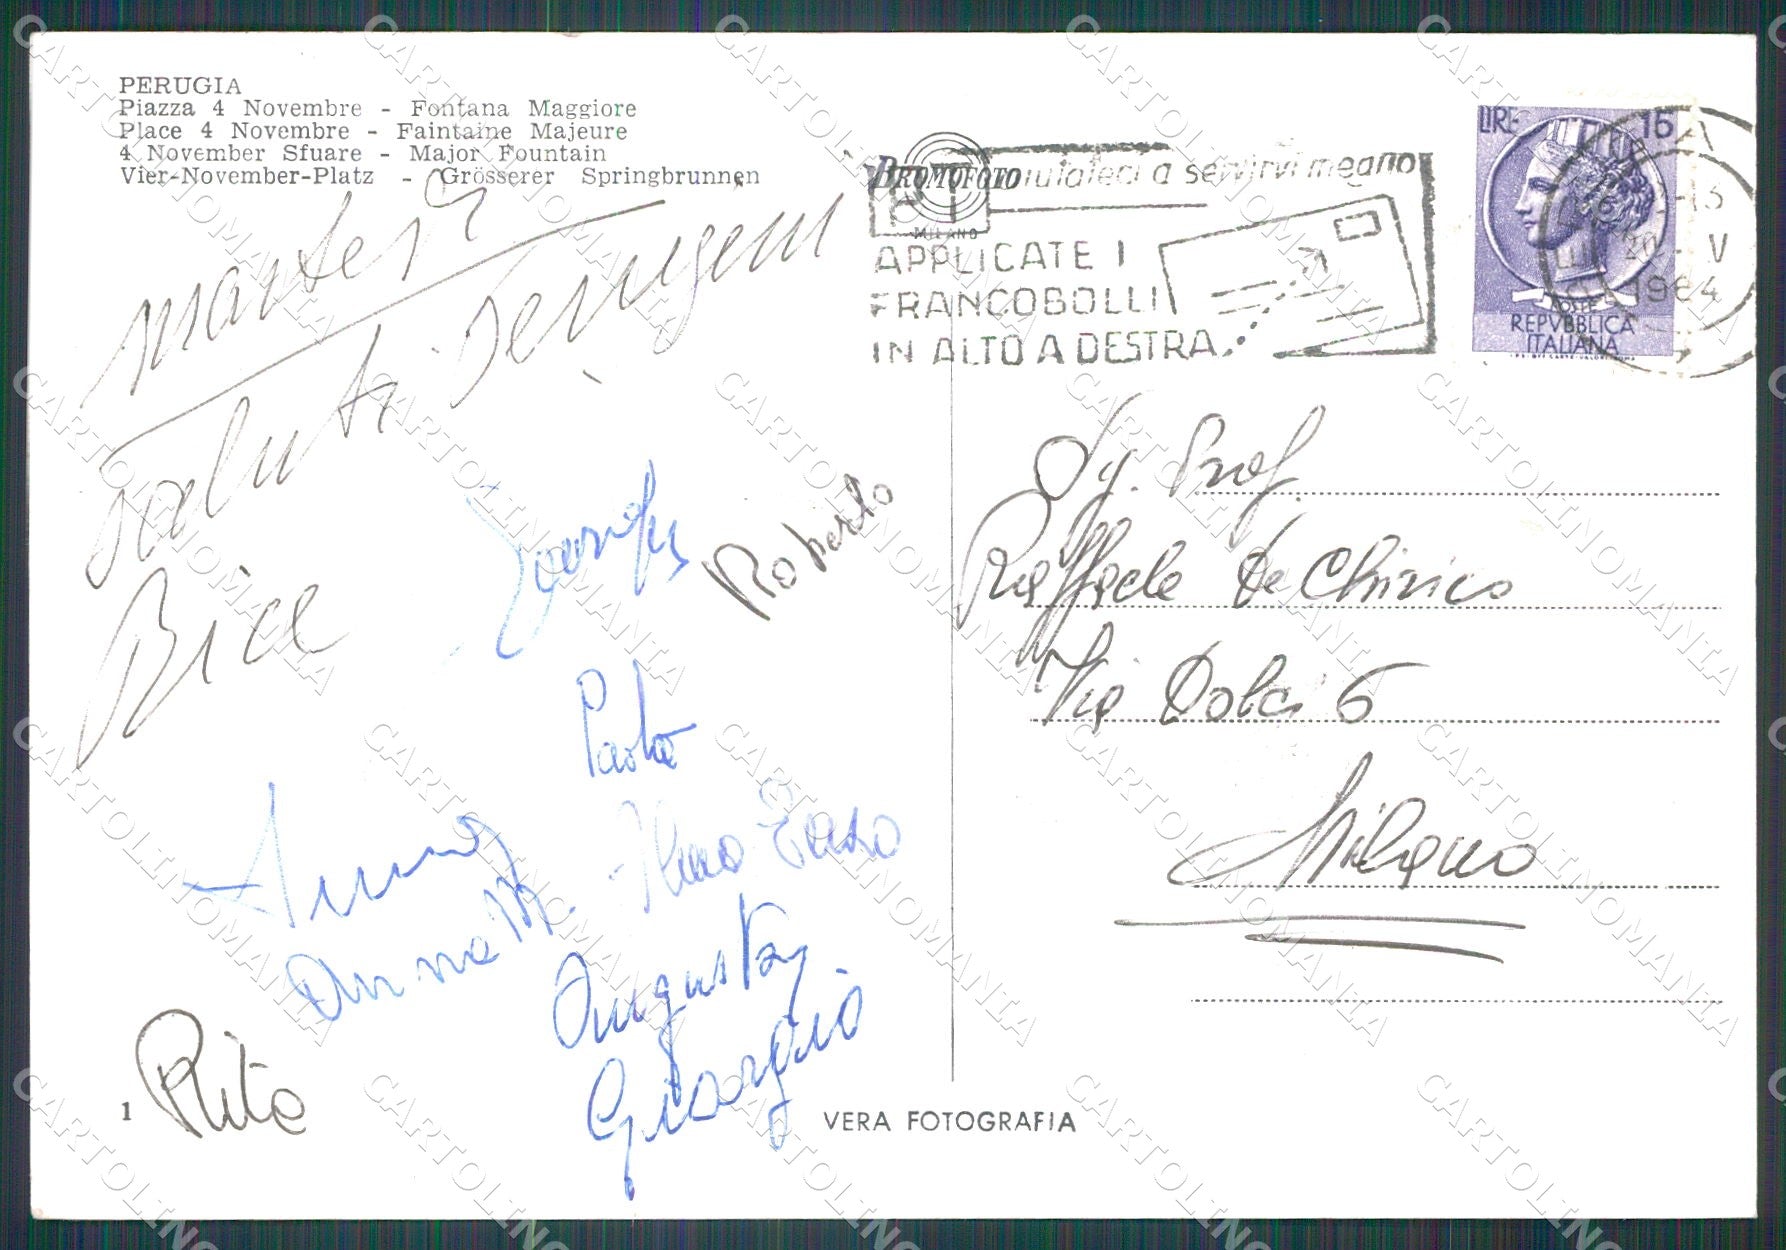 PERUGIA
Piazza 4 Novembre - Fontana Maggiore
Place 4 Novembre - Faintaine Majeure
4 November Sfuare - Major Fountain
Vier-November-Platz - Grösserer Springbrunnen
saluti
Bice
Roberto
Paola
Enzo
Anna M.
Augusta
Giorgio
Rita
1
VERA FOTOGRAFIA
BROMOFOTO
MILANO
a servirvi meglio
APPLICATE I
FRANCOBOLLI
IN ALTO A DESTRA
LIRE 15
POSTE
REPVBBLICA
ITALIANA
1964
Sg. Prof.
Raffaele De Chirico
Via Dolci 6
Milano
CARTOLINOMANIA